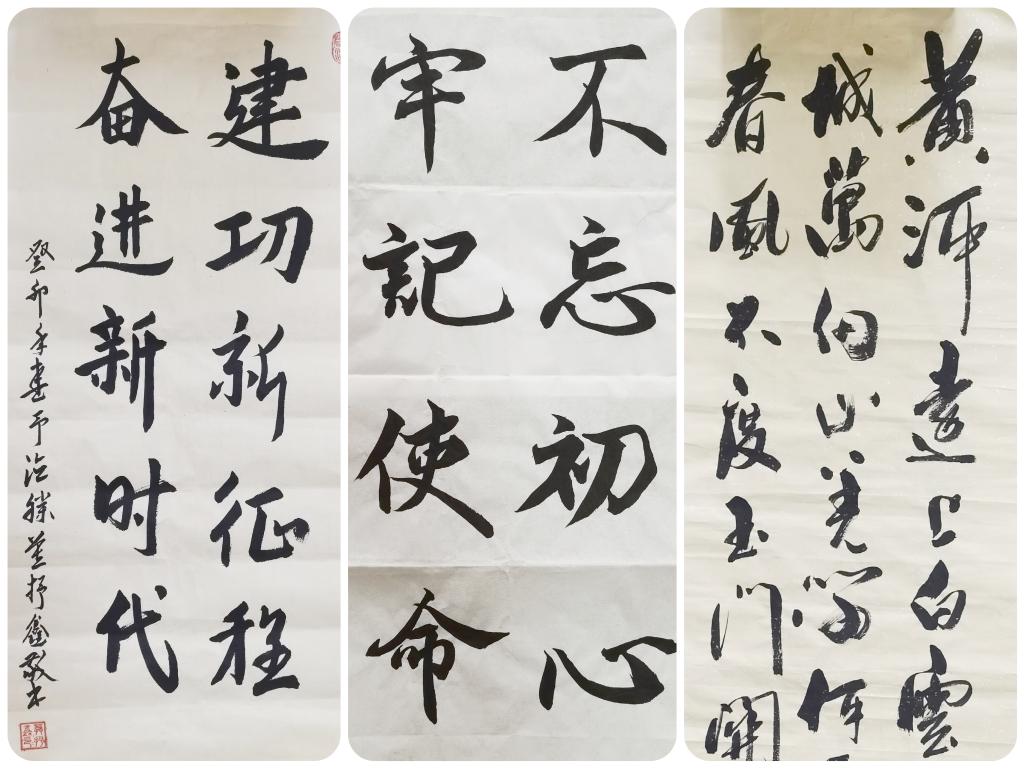 建功新征程
奋进新时代
癸卯年書于
不忘初心
牢記使命
黄河遠上白雲
城萬仞山羌笛何
春風不度玉門關